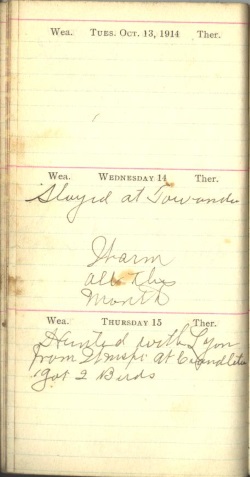 Wea. TUES. OCT. 13, 1914 Ther.
Wea. WEDNESDAY 14 Ther.
Stayed at Towanda
Warm
all this
Month
Wea. THURSDAY 15 Ther.
Hunted with Lyon
from at
got 2 Birds